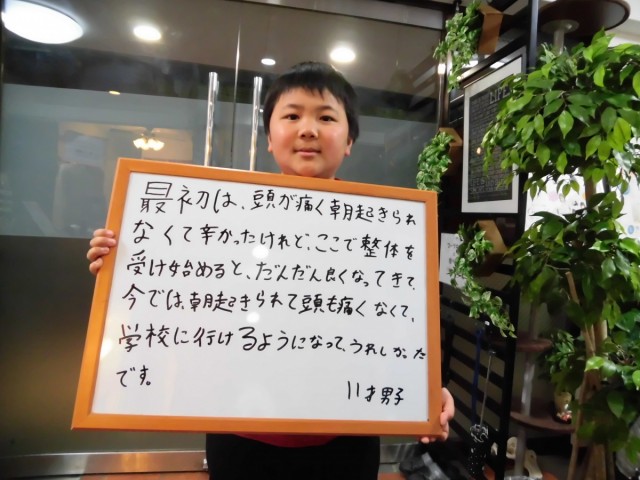 最初は、頭が痛く朝起きられ
なくて辛かったけれど、ここで整体を
受け始めると、だんだん良くなってきて、
今では、朝起きられて頭も痛くなくて、
学校に行けるようになって、うれしかった
です。
11才男子